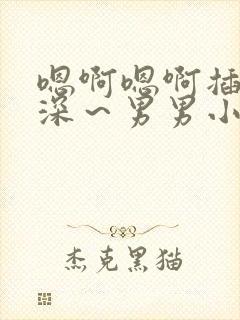 嗯啊嗯啊插
深~男男小
杰克黑猫